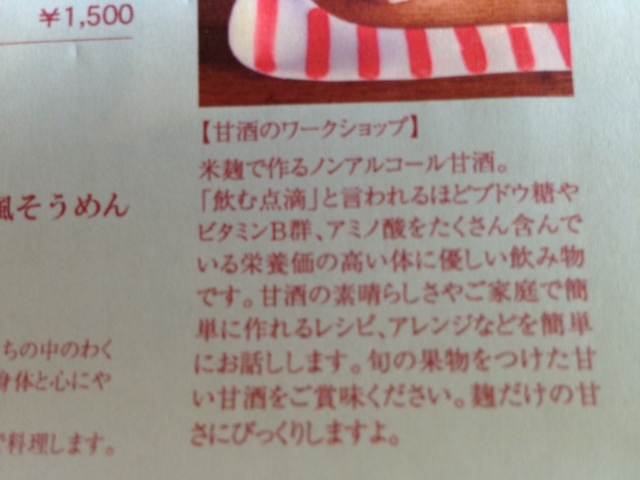 ￥1,500
風そうめん
ちの中のわく
身体と心にや
料理します。
【甘酒のワークショップ】
米麹で作るノンアルコール甘酒。
「飲む点滴」と言われるほどブドウ糖や
ビタミンB群、アミノ酸をたくさん含んで
いる栄養価の高い体に優しい飲み物
です。甘酒の素晴らしさやご家庭で簡
単に作れるレシピ、アレンジなどを簡単
にお話しします。旬の果物をつけた甘
い甘酒をご賞味ください。麹だけの甘
さにびっくりしますよ。